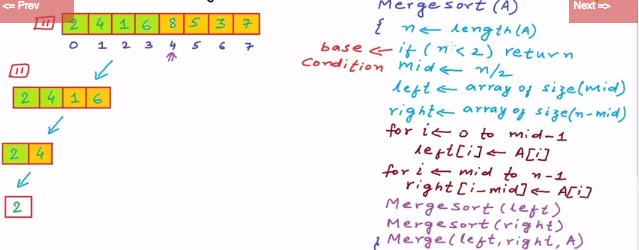 <= Prev
Next =>
2 4 1 6 8 5 3 7
0 1 2 3 4 5 6 7
2 4 1 6
2 4
2
Mergesort (A)
{ n ← length(A)
base ← if (n < 2) return
condition mid ← n/2
left ← array of size(mid)
right ← array of size(n-mid)
for i ← 0 to mid-1
left[i] ← A[i]
for i ← mid to n-1
right[i-mid] ← A[i]
Mergesort (left)
Mergesort (right)
Merge (left, right, A)